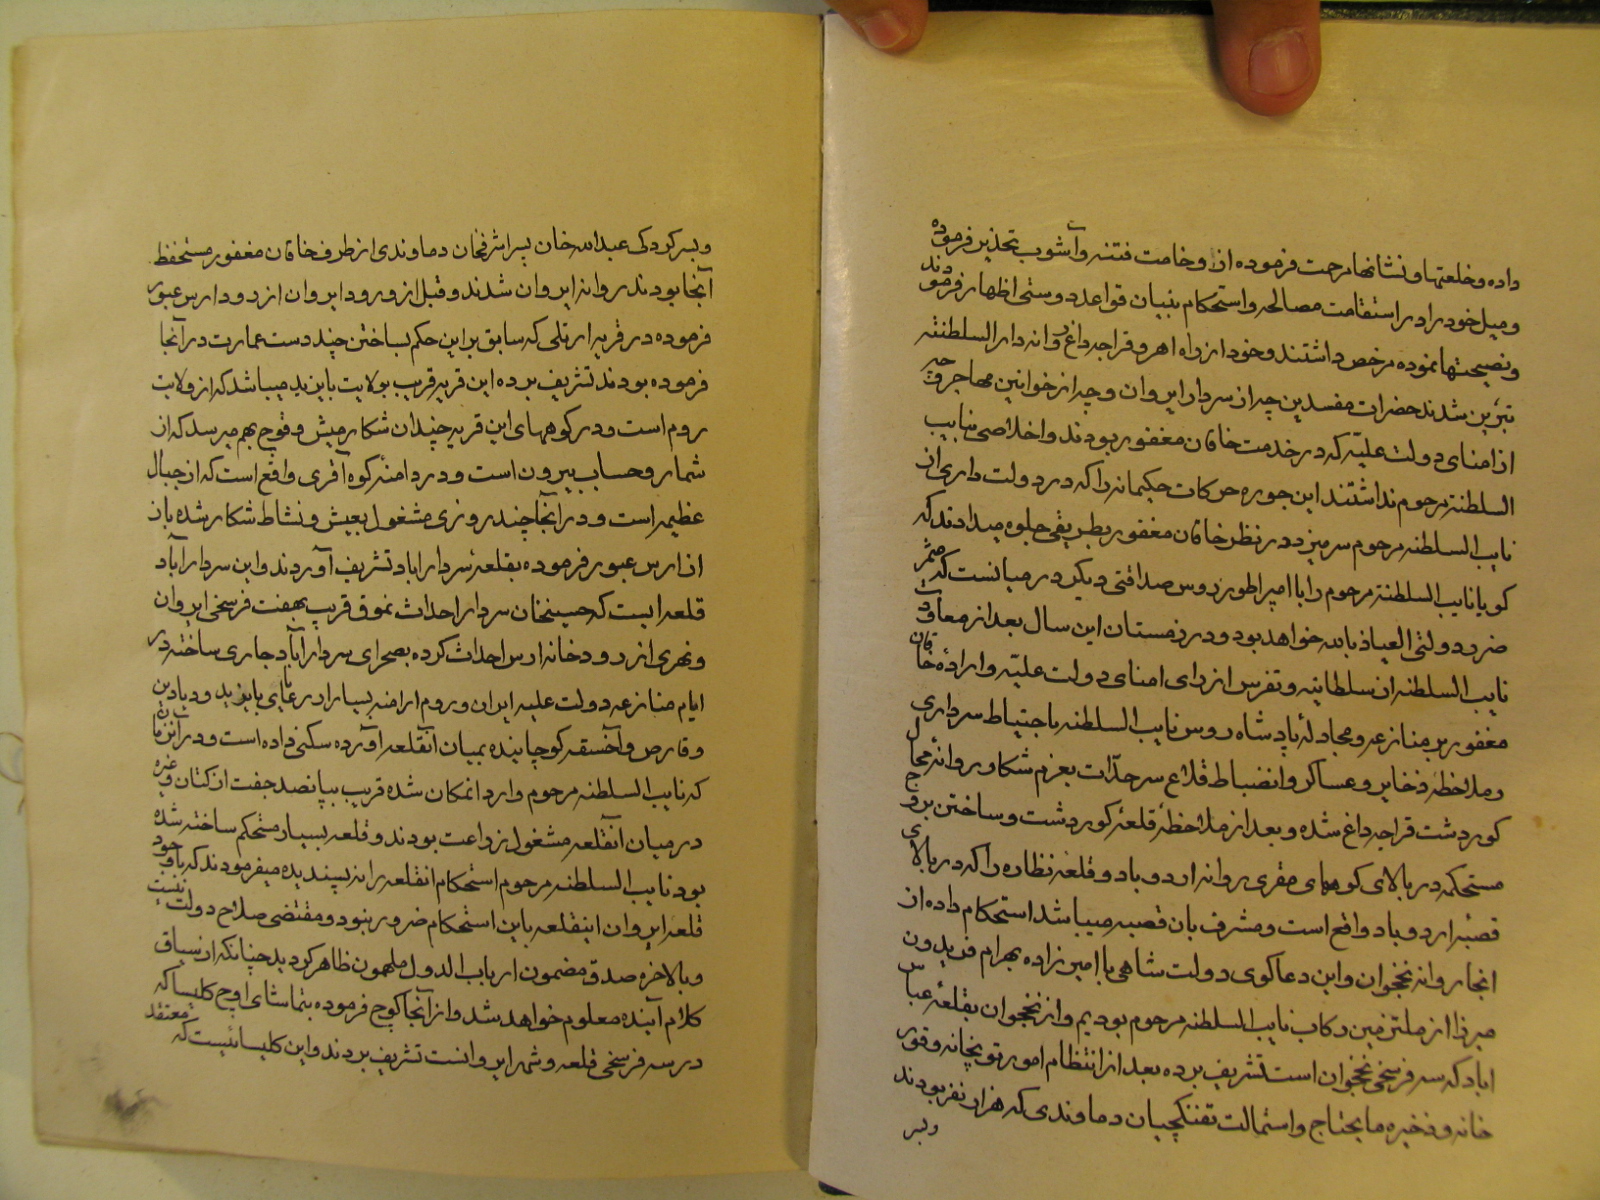 داده و خلعتها و نشانها مرحمت فرموده از وخامت فتنه و آشوب تحذیر فرموده
و میل خود را در استقامت مصالحه و استحکام بنیان قواعد دوستی اظهار فرمودند
و نصیحتها نموده مرخص داشتند و خود از راه اهر و قراجه داغ روانه دار السلطنه
تبریز شدند حضرات مفسدین چه از سردار ایروان و چه از خوانین مهاجر و چه
از امنای دولت علیّه که در خدمت خاقان مغفور بودند و اخلاصی بنایب
السلطنة مرحوم نداشتند این جوره حرکات حکیمانه را که در دولت داری از
نایب السلطنه مرحوم سر میزد در نظر خاقان مغفور بطریقی جلوه میدادند که
کویا نایب السلطنة مرحوم را با امپراطور روس صداقتی دیکر در میانست که مثمر
ضرر دولتی العیاذ بالله خواهد بود و در زمستان این سال بعد از معاودت
نایب السلطنه از سلطانیه و تفرس از رای امنای دولت علیّه و ارادهٔ خاقان
مغفور بر منازعه و مجادلهٔ پادشاه روس نایب السلطنه باحتیاط سرداری
و ملاحظه ذخایر و عساکر و انضباط قلاع سرحدّات بعزم شکار روانهٔ محال
کوردشت قراجه داغ شده و بعد از ملاحظهٔ قلعهٔ کوردشت و ساختن بروج
مستحکمه در بالای کوههای مقری روانه اردوباد و قلعه نظاره را که در بالای
قصبهٔ اردوباد واقع است و مشرف بان قصبه میباشد استحکام داده از
انجا روانه نخجوان و این دعا کوی دولت شاهی با امیر زاده بهرام فریدون
میرزا از ملتزمین رکاب نایب السلطنه مرحوم بودیم و از نخجوان بقلعهٔ عباس
اباد که سه فرسخی نخجوان است تشریف برده بعد از انتظام امور توپخانه و قور
خانه و ذخیره ما یحتاج و استمالت تفنکچیان دماوندی که هزار نفر بودند
و بسر
و بسر کردکی عبدالله خان پسر اشرفخان دماوندی از طرف خاقان مغفور مستحفظ
آنجا بودند روانه ایروان شدند و قبل از ورود ایروان از رود ارس عبور
فرموده در قریه ارتلی که سابق بر این حکم بساختن چند دست عمارت در آنجا
فرموده بودند تشریف برده این قریه قریب بولایت بایزید میباشد که از ولایت
روم است و در کوههای این قریه چندان شکار میش و قوچ بهم میرسد که از
شمار و حساب بیرون است و در دامنهٔ کوه آقری واقع است که از جبال
عظیمه است و در انجا چند روزی مشغول بعیش و نشاط شکار شده باز
از ارس عبور فرموده بقلعهٔ سردار اباد تشریف آوردند و این سردار آباد
قلعه ایست که حسینخان سردار احداث نموده قریب بهفت فرسخی ایروان
و نهری از رودخانه ارس احداث کرده بصحرای سردار آباد جاری ساخته در
ایام منازعه دولت علیه ایران و روم ارامنه بسیار از رعایای بایزید و دیادین
و قارص و آخسقه کوچانیده بمیان آنقلعه آورده سکنی داده است و در آنزمان
که نایب السلطنه مرحوم وارد انمکان شده قریب بپانصد جفت از کتان و غیره
در میان آنقلعه مشغول زراعت بودند و قلعه بسیار مستحکم ساخته شده
بود نایب السلطنه مرحوم استحکام انقلعه را نه پسندیده میفرمودند که با وجود
قلعه ایروان اینقلعه باین استحکام ضرور نبود و مقتضی صلاح دولت نیست
و بالاخره صدق مضمون ارباب الدول ملهمون ظاهر کردید چنانکه از سیاق
کلام آینده معلوم خواهد شد و از آنجا کوچ فرموده بتماشای اوچ کلیسا که
در سه فرسخی قلعه و شهر ایروانست تشریف بردند و این کلیسائیست که معتقد